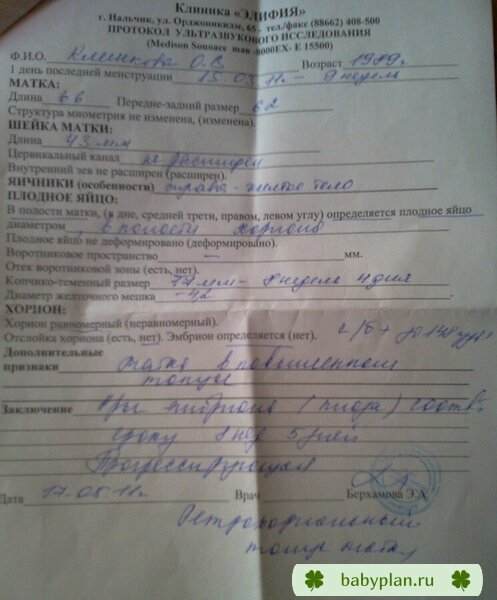 Клиника «ЭЛИФИЯ»
г. Нальчик, ул. Орджоникидзе, 65 - тел./факс (88662) 408-500
ПРОТОКОЛ УЛЬТРАЗВУКОВОГО ИССЛЕДОВАНИЯ
(Medison Sonoace man -8000EX- E 15500)
Ф.И.О. О.В Возраст 1989г.
1 день последней менструации 15.03.11. - 9 недель
МАТКА:
Длина 66 Передне-задний размер 62
Структура миометрия не изменена, (изменена).
ШЕЙКА МАТКИ:
Длина 43 мм
Цервикальный канал не расширен
Внутренний зев не расширен (расширен).
ЯИЧНИКИ (особенности) справа - желтое тело
ПЛОДНОЕ ЯЙЦО:
В полости матки, (в дне, средней трети, правом, левом углу) определяется плодное яйцо
диаметром , в полости
Плодное яйцо не деформировано (деформировано).
Воротниковое пространство — мм.
Отек воротниковой зоны (есть, нет).
Копчико-теменный размер мм - 8 недель 4 дня
Диаметр желточного мешка
ХОРИОН:
Хорион равномерный (неравномерный).
Отслойка хориона (есть, нет). Эмбрион определяется (нет). с/б +
Дополнительные матка в повышенном
признаки тонусе
Заключение эмбриона (плода) соотв.
сроку 8 нед 5 дней
Прогрессирующая
Дата 17.05.11г. Врач Берхамова Э.А.
Ретрохориальный
тонус матки
babyplan.ru